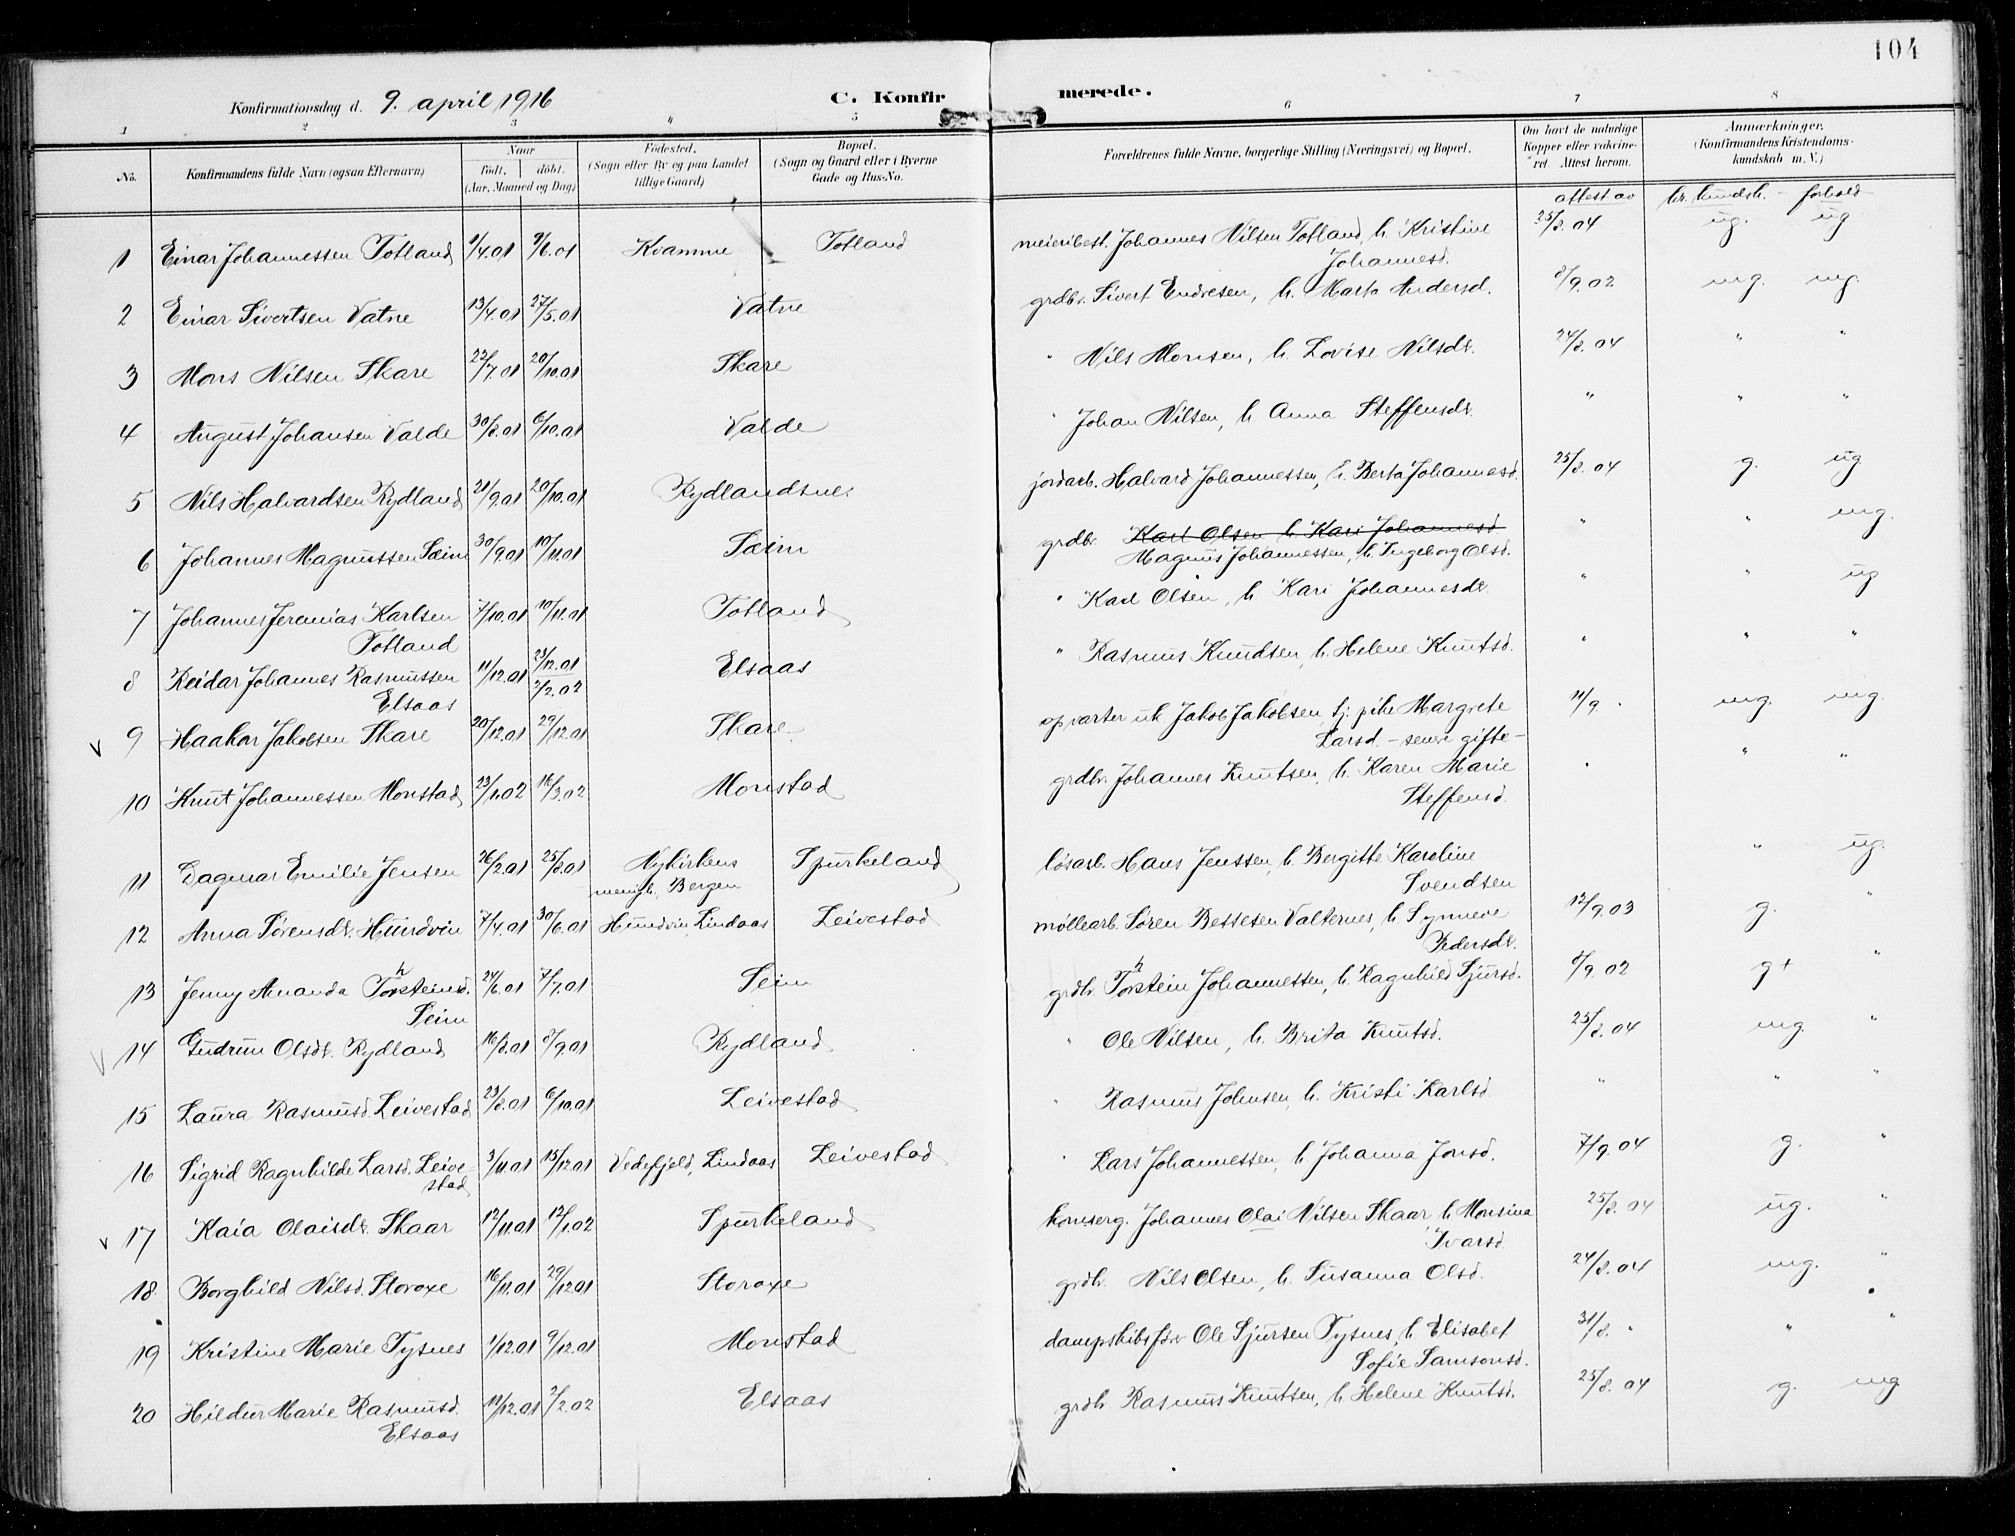 104
Konfirmationsdag d. 9. april 1916 C. Konfirmerede.
1 2 3 " 5 6 7 8
No. Konfirmandens fulde Navn (ogsaa Efternavn) Naar Født. døbt. (Aar, Maaned og Dag) Fødested. (Sogn eller By og paa Landet tillige Gaard) Bopæl. (Sogn og Gaard eller i Byerne Gade og Hus-No. Forældrenes fulde Navne, borgerlige Stilling (Næringsvei) og Bopæl. Om havt de naturlige Kopper eller vakcineret. Attest herom. Anmærkninger. (Konfirmandens Kristendomskundskab m. V.)
attest av kr. kundsk. - forhold
1 Einar Johannessen Totland 1/4.01 9/6.01 Kvamme Totland meieribest. Johannes Nilsen Totland, h. Kristine 25/8.04 ug. ug
Johannesd.
2 Einar Sivertsen Vatne 13/4.01 27/5.01 Vatne grdbr. Sivert Endresen, h. Marta Andersd. 8/9.02 mg. mg.
3 Mons Nilsen Skare 22/7.01 20/10.01 Skare " Nils Monsen, h. Lovise Nilsdr. 24/8.04 " "
4 August Johansen Valde 30/8.01 6/10.01 Valde " Johan Nilsen, h Anna Steffensdr. " " "
5 Nils Halvardsen Rydland 21/9.01 20/10.01 Rydlandsnes jordarb. Halvard Johannessen, h. Berta Johannesd. 25/8.04 g. ug
6 Johannes Magnussen Sæim 30/9.01 10/11.01 Sæim grdbr. Karl Olsen h Kari Johannesd " " mg.
Magnus Johannessen, h. Ingeborg Olsd.
7 Johannes Jeremias Karlsen 7/10.01 10/11.01 Totland " Karl Olsen, h Kari Johannesdr. " " ug
Totland
8 Reidar Johannes Rasmussen 11/12.01 23/12.01 2/2.02 Elsaas " Rasmus Knudsen, h. Helene Knutsd. " " "
Elsaas
v 9 Haakon Jakobsen Skare 20/12.01 29/12.01 Skare opvarter uk Jakob Jakobsen, tj. pike Margrete 11/9. " mg. mg.
Larsd. - senere gifte -
10 Knut Johannessen Monstad 23/1.02 16/3.02 Monstad grdbr. Johannes Knutsen, h. Karen Marie " " "
Steffensd.
11 Dagmar Emilie Jensen 26/2.01 25/8.01 Nykirkens Spurkeland løsarb. Hans Jenssen, h. Bergitte Karoline " ug.
menigh. Bergen Svendsen
12 Anna Sørensdr. Hundvin 7/4.01 30/6.01 Hundvin, Lindaas Leivestad møllearb. Søren Bessesen Valternes, h Synneve 12/9.03 g. "
Pedersdr.
13 Jenny Amanda Thorsteinsd. 24/6.01 7/7.01 Seim grdbr. Thorstein Johannessen, h. Ragnhild Sjursd. 8/9.02 g+ "
Seim
v 14 Gudrun Olsdr. Rydland 16/8.01 8/9.01 Rydland " Ole Nilsen, h. Brita Knutsd. 25/8.04 mg. "
15 Laura Rasmusd. Leivestad 23/8.01 6/10.01 Leivestad " Rasmus Johnsen, h. Kristi Karlsd. " " "
16 Sigrid Ragnhilde Larsd. Leive- 3/11.01 15/12.01 Vedefjeld, Lindaas Leivestad " Lars Johannessen, h Johanna Jonsd. 7/9.04 g. "
stad
v 17 Kaia Olaisdr. Skaar 12/11.01 12/1.02 Spurkeland Johannes Olai Nilsen Skaar h Monsina 25/8.04 ug. "
Ivarsd
18 Borghild Nilsd. Storoxe 16/11.01 29/12.01 Storoxe grdbr. Nils Olsen, h. Susanna Olsd. 24/8.04 mg. "
19 Kristine Marie Tysnes 1/12.01 9/12.01 Monstad dampskibsfør. Ole Sjursen Tysnes, h. Elisabet 31/8. " " "
Sofie Samsonsd.
20 Hildur Marie Rasmusd. 11/12.01 2/2.02 Elsaas grdbr. Rasmus Knutsen, h. Helene Knutsd. 25/8.04 g. mg
Elsaas